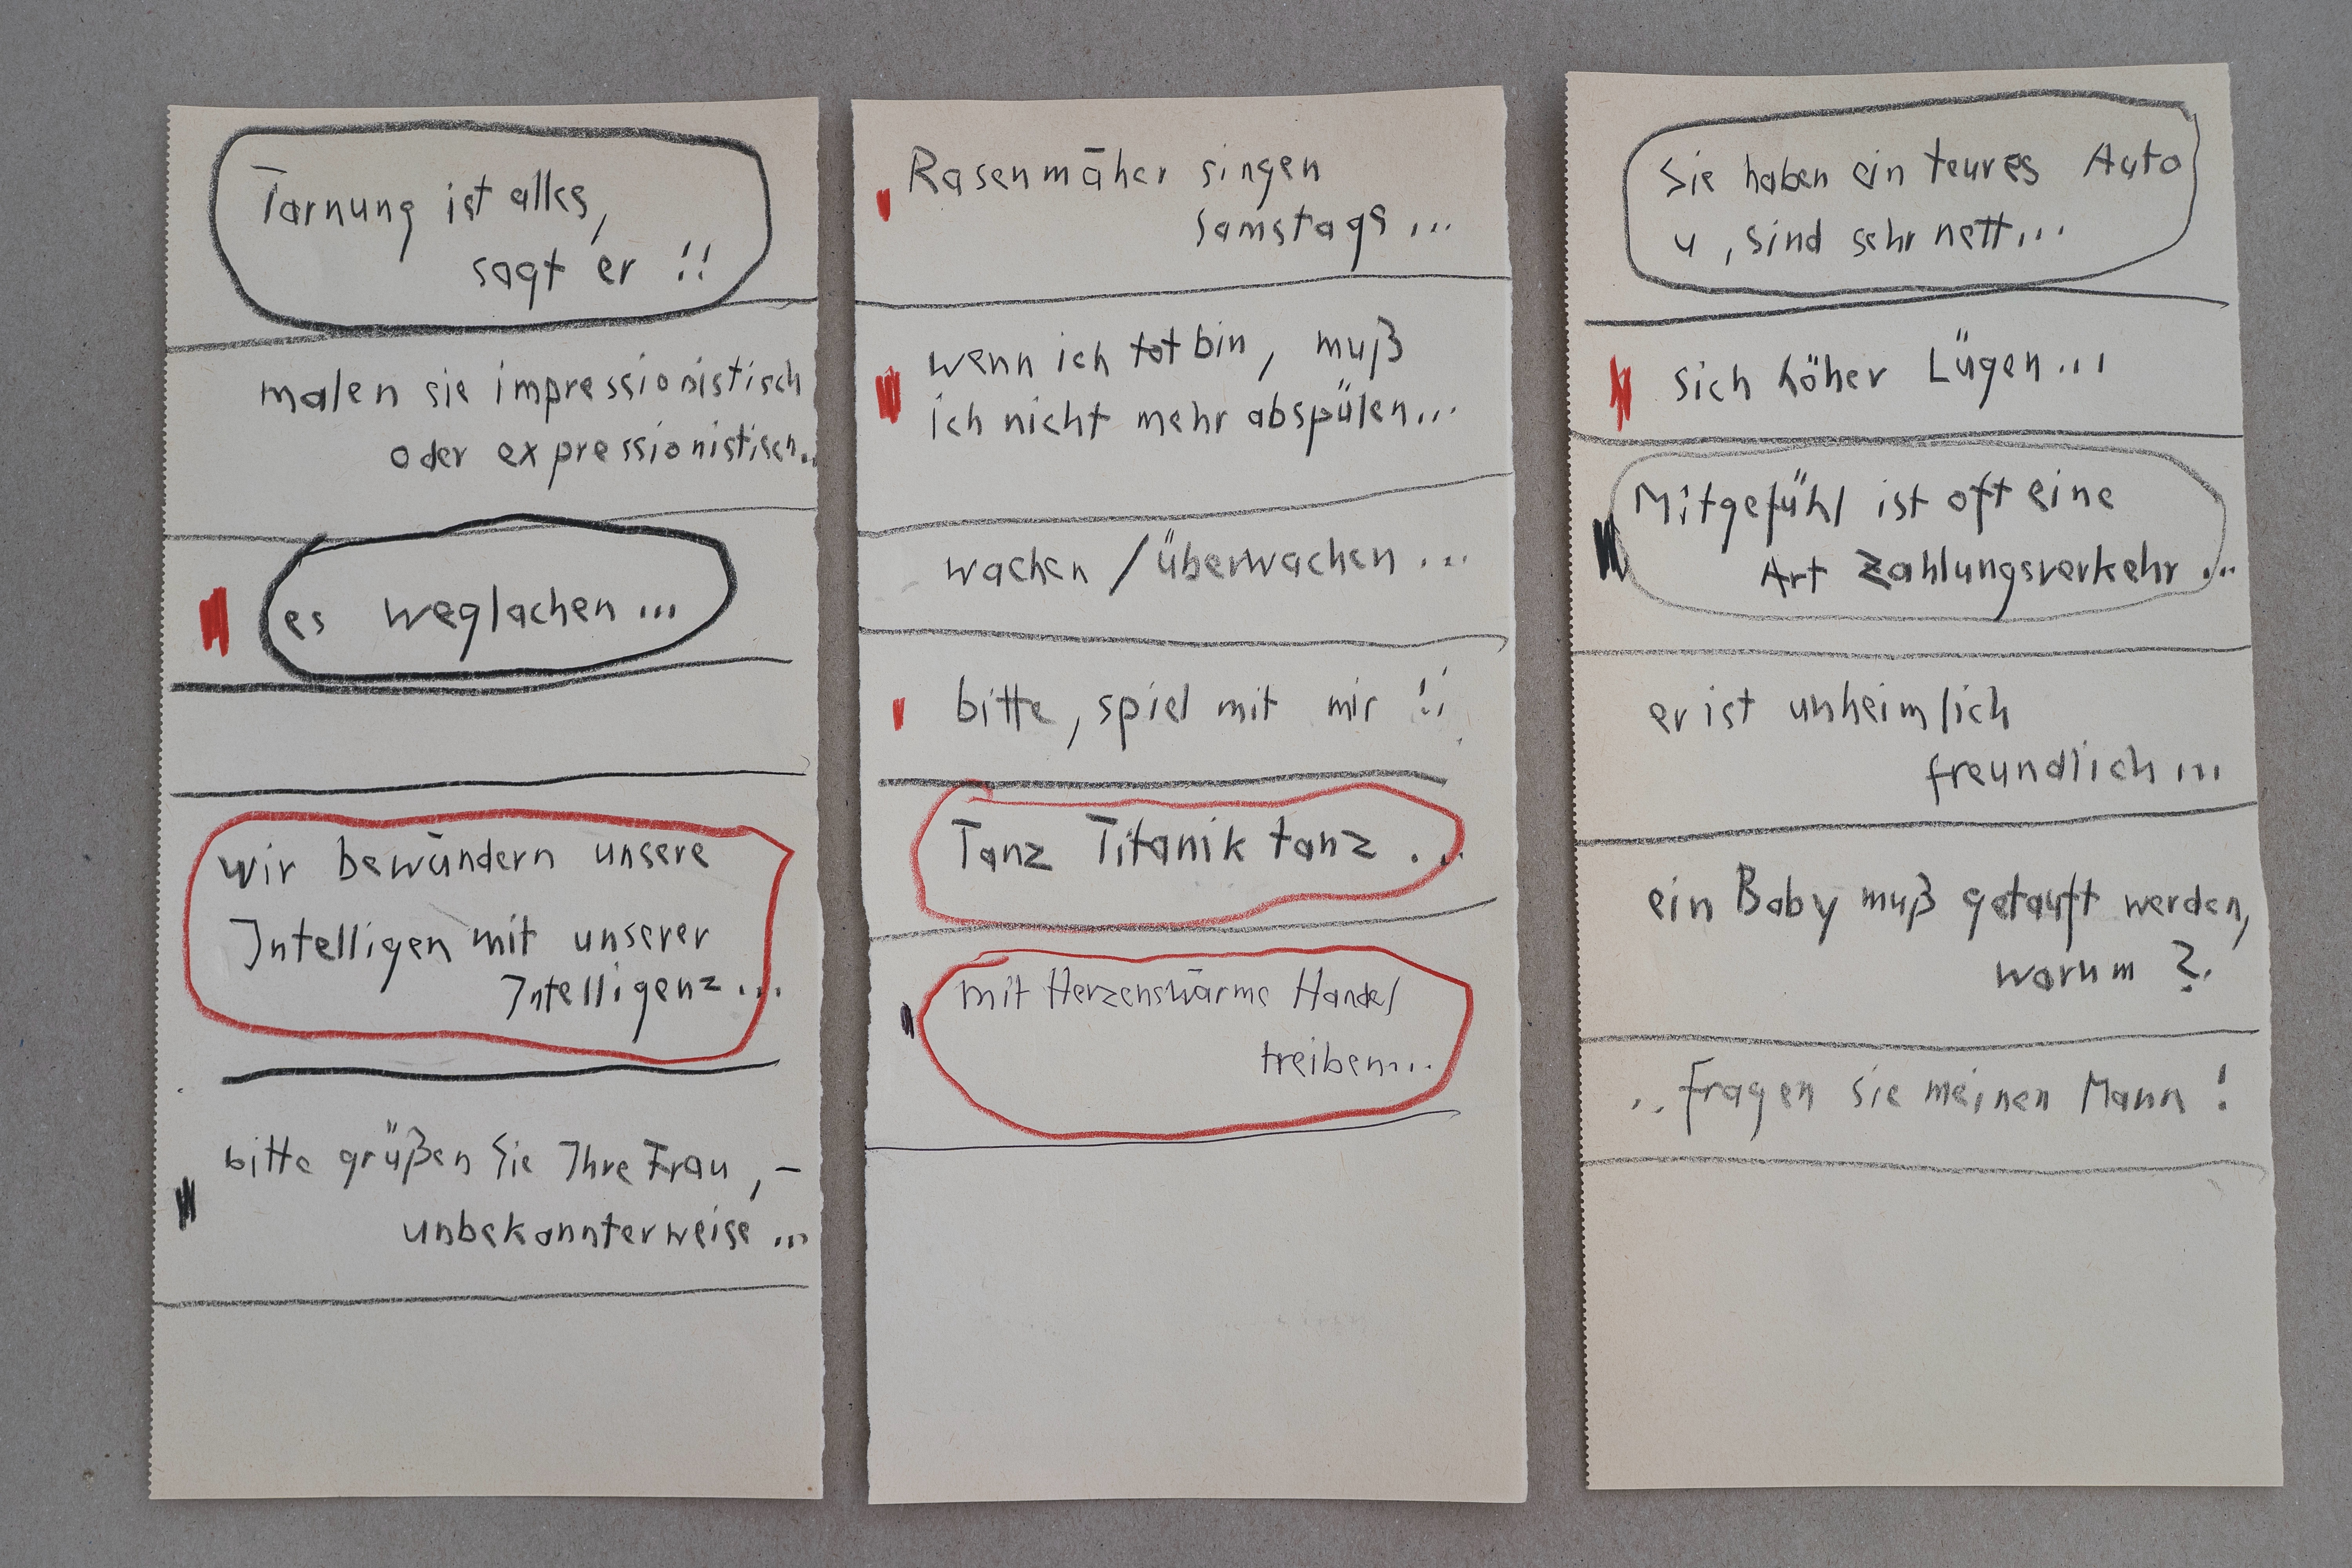 Tarnung ist alles,
sagt er !!
malen sie impressionistisch
oder expressionistisch..
es weglachen...
wir bewundern unsere
Intelligen mit unserer
Intelligenz...
bitte grüßen Sie Ihre Frau, –
unbekannterweise...
Rasenmäher singen
samstags...
wenn ich tot bin, muß
ich nicht mehr abspülen...
wachen / überwachen...
bitte, spiel mit mir !!
Tanz Titanik tanz...
mit Herzenswärme Handel
treiben...
Sie haben ein teures Auto
u, sind sehr nett...
sich höher Lügen...
Mitgefühl ist oft eine
Art Zahlungsverkehr...
er ist unheimlich
freundlich...
ein Baby muß getauft werden,
warum ?
.. fragen sie meinen Mann !